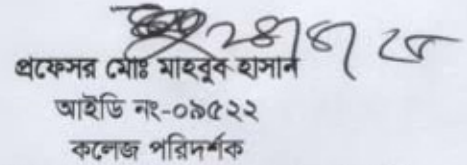 প্রফেসর মোঃ মাহবুব হাসান
আইডি নং-০৯৫২২
কলেজ পরিদর্শক